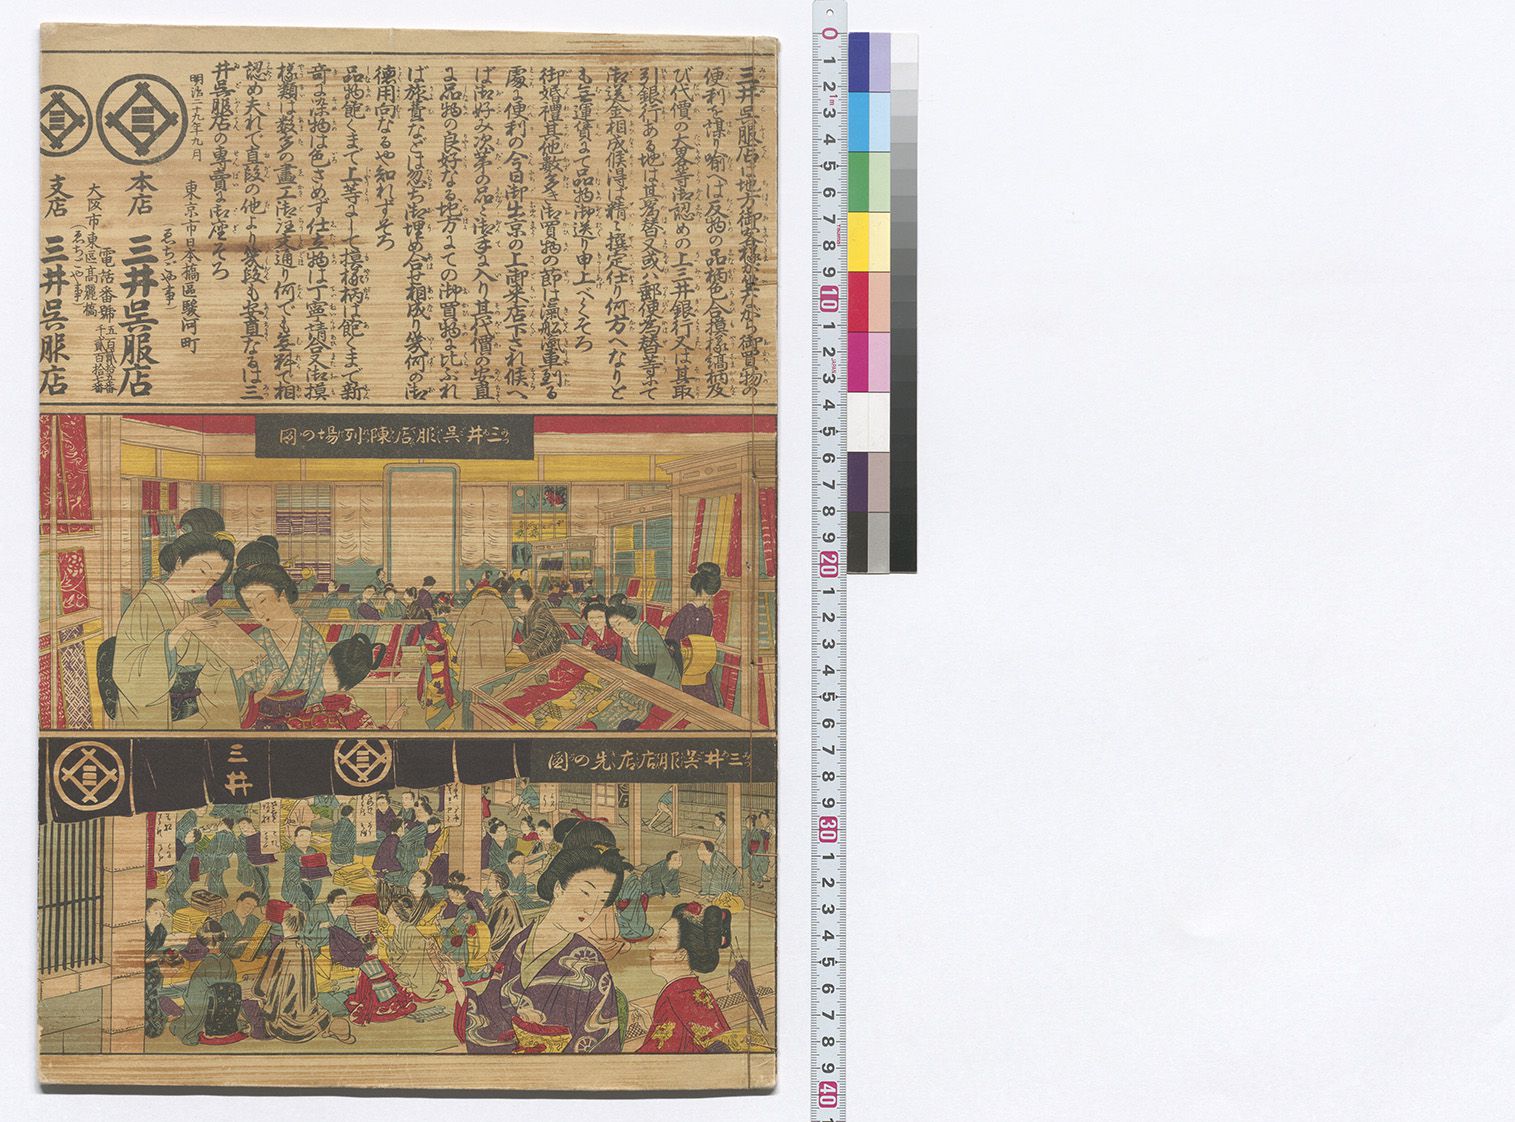 三井呉服店は地方御客様が坐ながら御買物の
便利を謀り喩へは反物の品柄色合摸様縞柄及
び代價の大畧等御認めの上三井銀行又は其取
引銀行ある地は其爲替又或ハ郵便為替等にて
御送金相成候得は精々撰定仕り何方へなりと
も無運賃にて品物御送り申上べくそろ
御婚禮其他數多き御買物の節は滊船滊車到る
處に便利の今日御出京の上御来店下され候へ
ば御好み次第の品々御手に入り其代價の安直
に品物の良好なる地方にての御買物に比ぶれ
ば旅費などは忽ち御埋め合せ相成り幾何の御
徳用向なるや知れずそろ
品物飽くまて上等にして摸様柄は飽くまで新
奇に染物は色さめず仕立物は丁寧請合又御摸
様類は数多の畵工御注文通り何でも無料で相
認め夫れで直段の他より幾段も安直なるは三
井呉服店の專賣に御座そろ
明治二十九年九月
東京市日本橋區駿河町
(ゑちごや事)
本店 三井呉服店
電話番號 五百貳拾五番 千貳百拾七番
大阪市東區高麗橋
(ゑちごや事)
支店 三井呉服店
三井呉服店陳列場の圖
三井呉服店店先の圖
三井